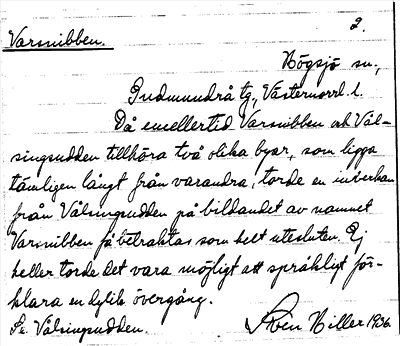 Varsnibben.
2.
Högsjö sn,
Gudmundrå tg., Västernorrl. l.
Då emellertid Varsnibben och Väl-
singsudden tillhöra två olika byar, som ligga
tämligen långt från varandra, torde en inverkan
från Välsingsudden på bildandet av namnet
Varsnibben få betraktas som helt utesluten. Ej
heller torde det vara möjligt att språkligt för-
klara en dylik övergång.
Se Välsingsudden.
Sven Hiller 1936.